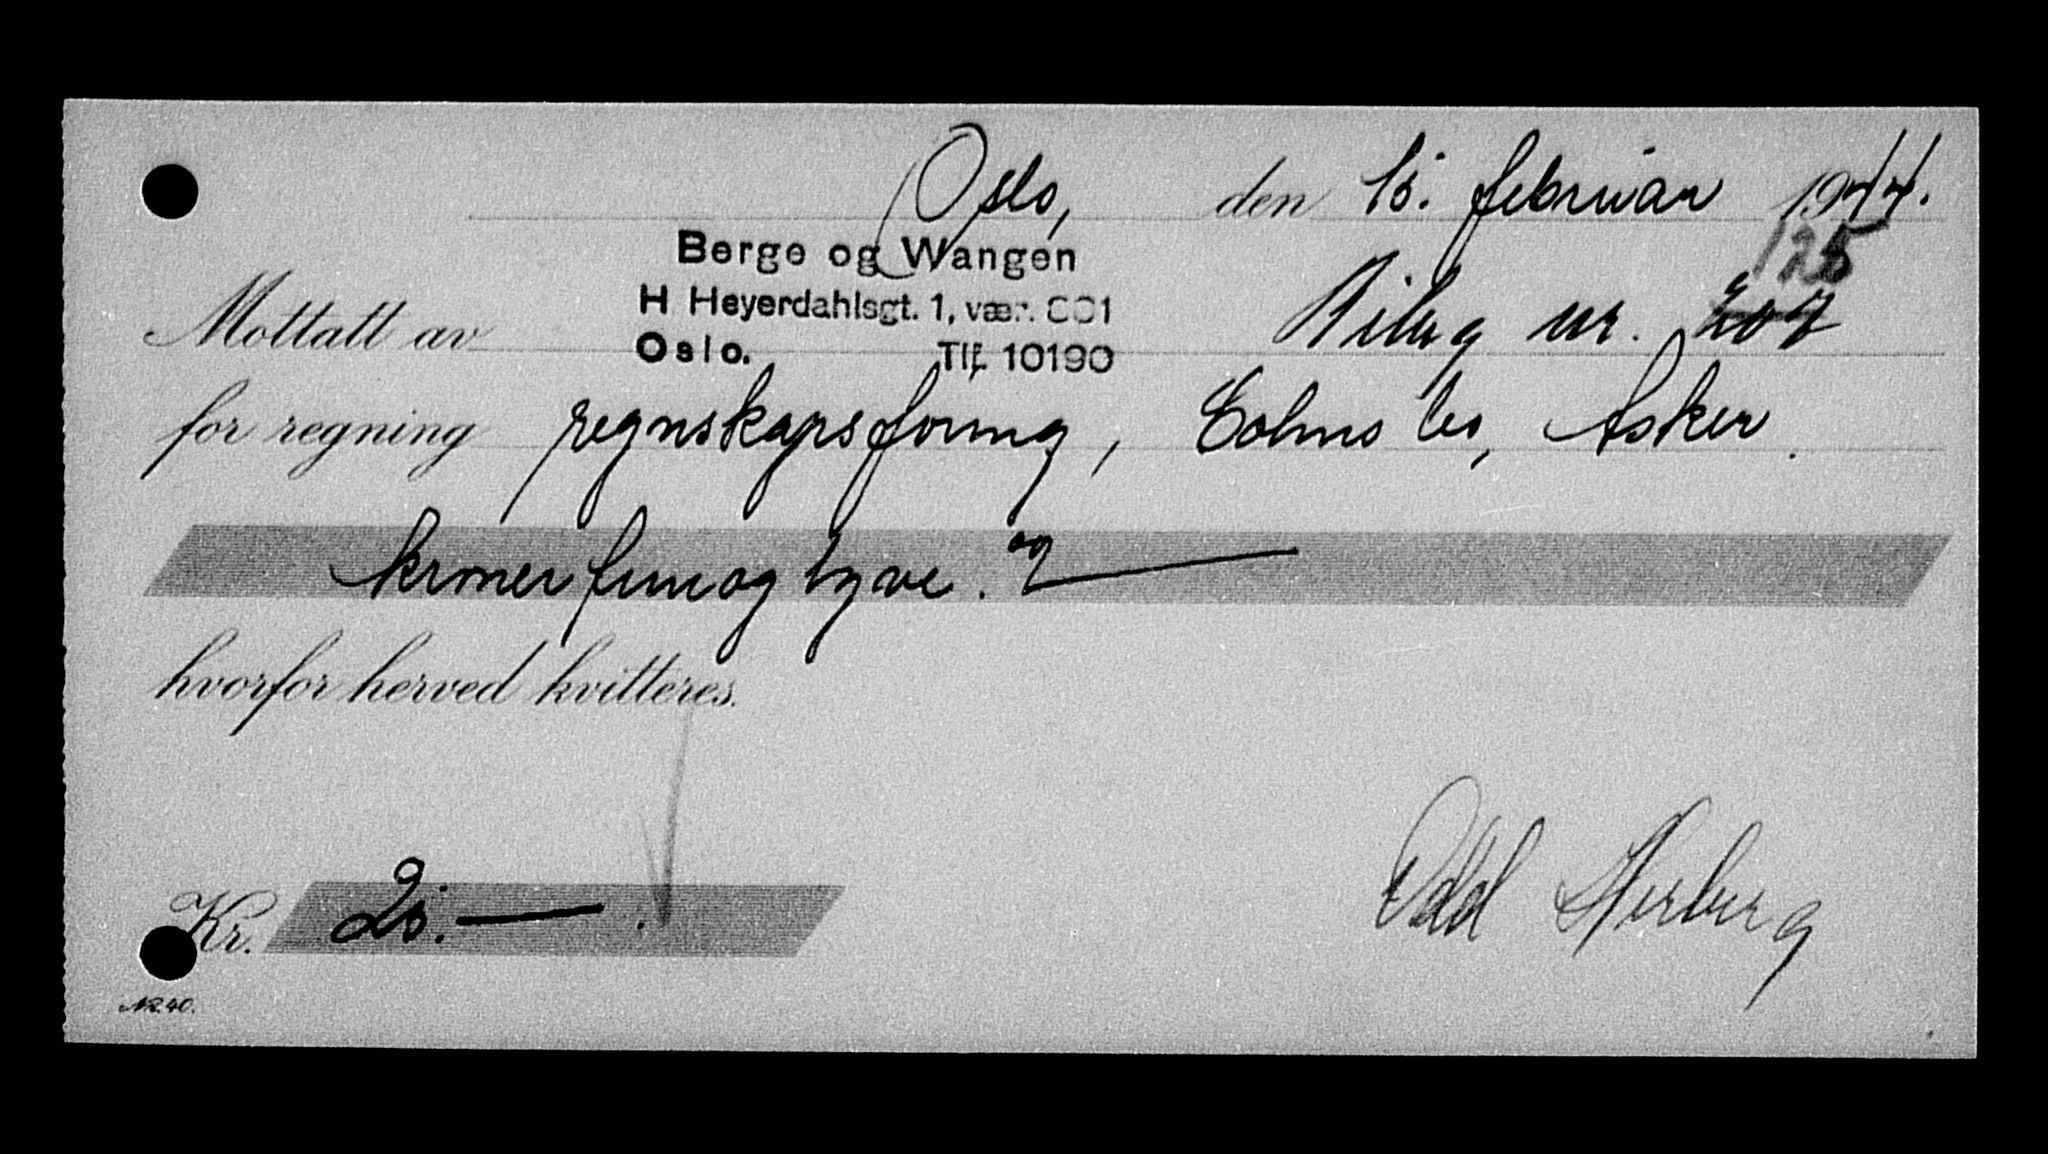 Oslo, den 15. februar 1944.
125
Berge og Wangen
H Heyerdahlsgt. 1, vær. 801
Oslo. Tlf. 10190
Mottatt av Bilag nr. 207
for regning regnskapsføring, Cohns bo, Asker.
kroner femogtyve. og
hvorfor herved kvitteres.
Kr. 25.—.
Odd Herberg
Nr. 40.